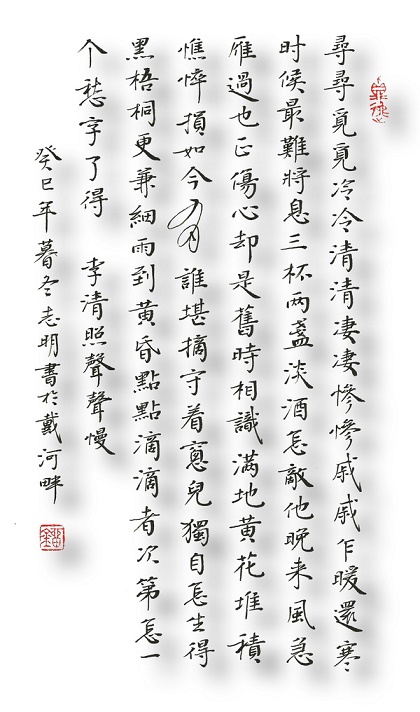 尋尋覓覓冷冷清清凄凄慘慘戚戚乍暖還寒
時候最難將息三杯两盞淡酒怎敵他晚来風急
雁過也正傷心却是舊時相識滿地黄花堆積
憔悴損如今有誰堪摘守着窓兒獨自怎生得
黑梧桐更兼細雨到黄昏點點滴滴者次第怎一
个愁字了得 李清照聲聲慢
癸巳年暮冬志明書於戴河畔